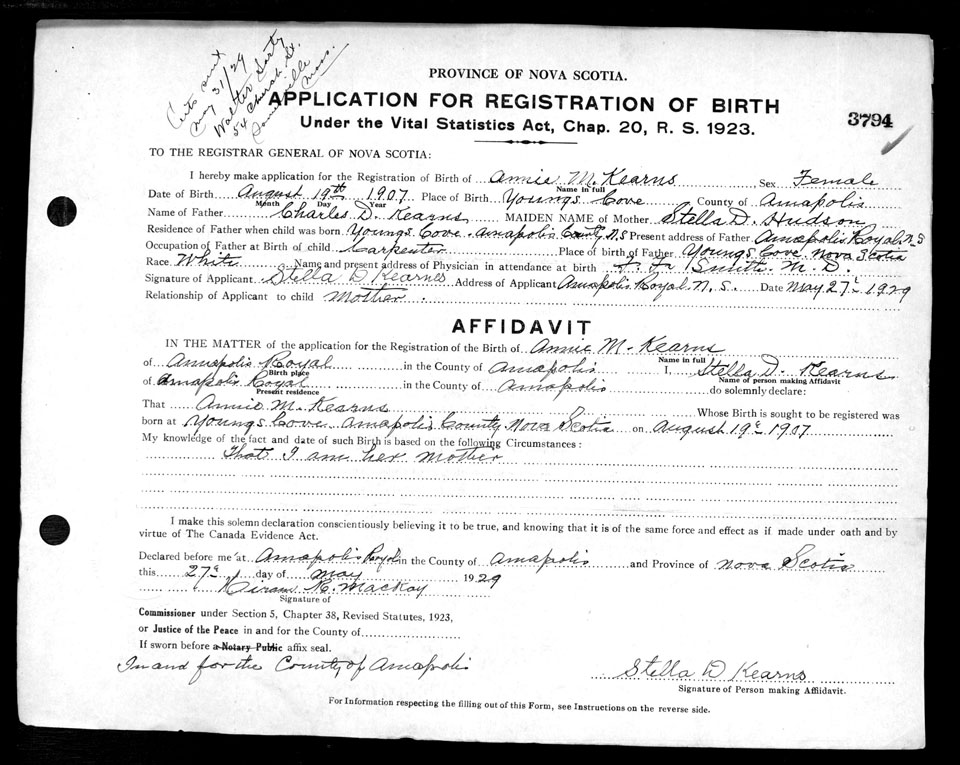 Certs sent
May 31/29
Walter Sarty
54 Church St.
Somerville
Mass.
PROVINCE OF NOVA SCOTIA.
APPLICATION FOR REGISTRATION OF BIRTH
3794
Under the Vital Statistics Act, Chap. 20, R. S. 1923.
TO THE REGISTRAR GENERAL OF NOVA SCOTIA:
I hereby make application for the Registration of Birth of Annie M. Kearns Sex Female
Name in full
Date of Birth August 19th 1907 Place of Birth Youngs Cove County of Annapolis
Month Day Year
Name of Father Charles D. Kearns MAIDEN NAME of Mother Stella D. Hudson
Residence of Father when child was born Youngs Cove. Annapolis County N,S Present address of Father Annapolis Royal N.S
Occupation of Father at Birth of child Carpenter Place of birth of Father Youngs Cove Nova Scotia
Race White Name and present address of Physician in attendance at birth Smith M. D.
Signature of Applicant Stella D Kearns Address of Applicant Annapolis Royal. N, S. Date May 27 1929
Relationship of Applicant to child Mother.
AFFIDAVIT
IN THE MATTER of the application for the Registration of the Birth of Annie M. Kearns
Name in full
of Annapolis Royal in the County of Annapolis I, Stella D. Kearns
Birth place Name of person making Affidavit
of Annapolis Royal in the County of Annapolis do solemnly declare:
Present residence
That Annie M. Kearns Whose Birth is sought to be registered was
born at Youngs Cove Annapolis County Nova Scotia on August 19 1907
My knowledge of the fact and date of such Birth is based on the following Circumstances:
That I am her Mother
I make this solemn declaration conscientiously believing it to be true, and knowing that it is of the same force and effect as if made under oath and by
virtue of The Canada Evidence Act.
Declared before me at Annapolis Royal in the County of Annapolis and Province of Nova Scotia
this 27 day of May 1929
Hiram K. MacKay
Signature of
Commissioner under Section 5, Chapter 38, Revised Statutes, 1923,
or Justice of the Peace in and for the County of
If sworn before a Notary Public affix seal.
In and for the County of Annapolis
Stella D Kearns
Signature of Person making Affidavit.
For Information respecting the filling out of this Form, see Instructions on the reverse side.